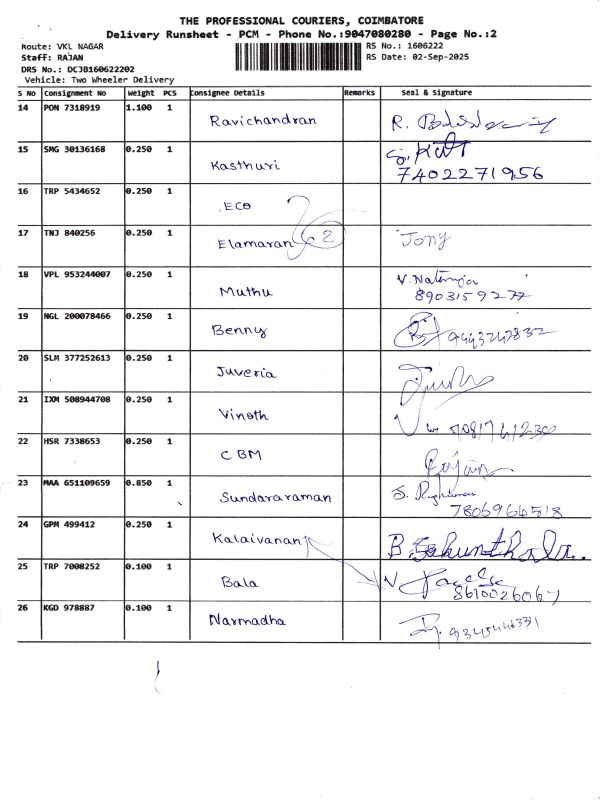 THE PROFESSIONAL COURIERS, COIMBATORE
Delivery Runsheet - PCM - Phone No.:9047080280 - Page No.:2
Route: VKL NAGAR RS No.: 1606222
Staff: RAJAN RS Date: 02-Sep-2025
DRS No.: DCJB160622202
Vehicle: Two Wheeler Delivery
S No Consignment No Weight PCS Consignee Details Remarks Seal & Signature
14 PON 7318919 1.100 1 Ravichandran R.
15 SMG 30136168 0.250 1 Kasthuri
7402271956
16 TRP 5434652 0.250 1 ECO
17 TNJ 840256 0.250 1 Elamaran 2 Jony
18 VPL 953244007 0.250 1 Muthu V. Nataraja
8903159277
19 NGL 200078466 0.250 1 Benny
20 SLM 377252613 0.250 1 Juveria
21 IXM 508944708 0.250 1 Vinoth
22 HSR 7338653 0.250 1 CBM Rajan
23 MAA 651109659 0.850 1 Sundararaman S.
7806964518
24 GPM 499412 0.250 1 Kalaivanan B. Sakunthala..
25 TRP 7008252 0.100 1 Bala
8610026067
26 KGD 978887 0.100 1 Narmadha 9345446331